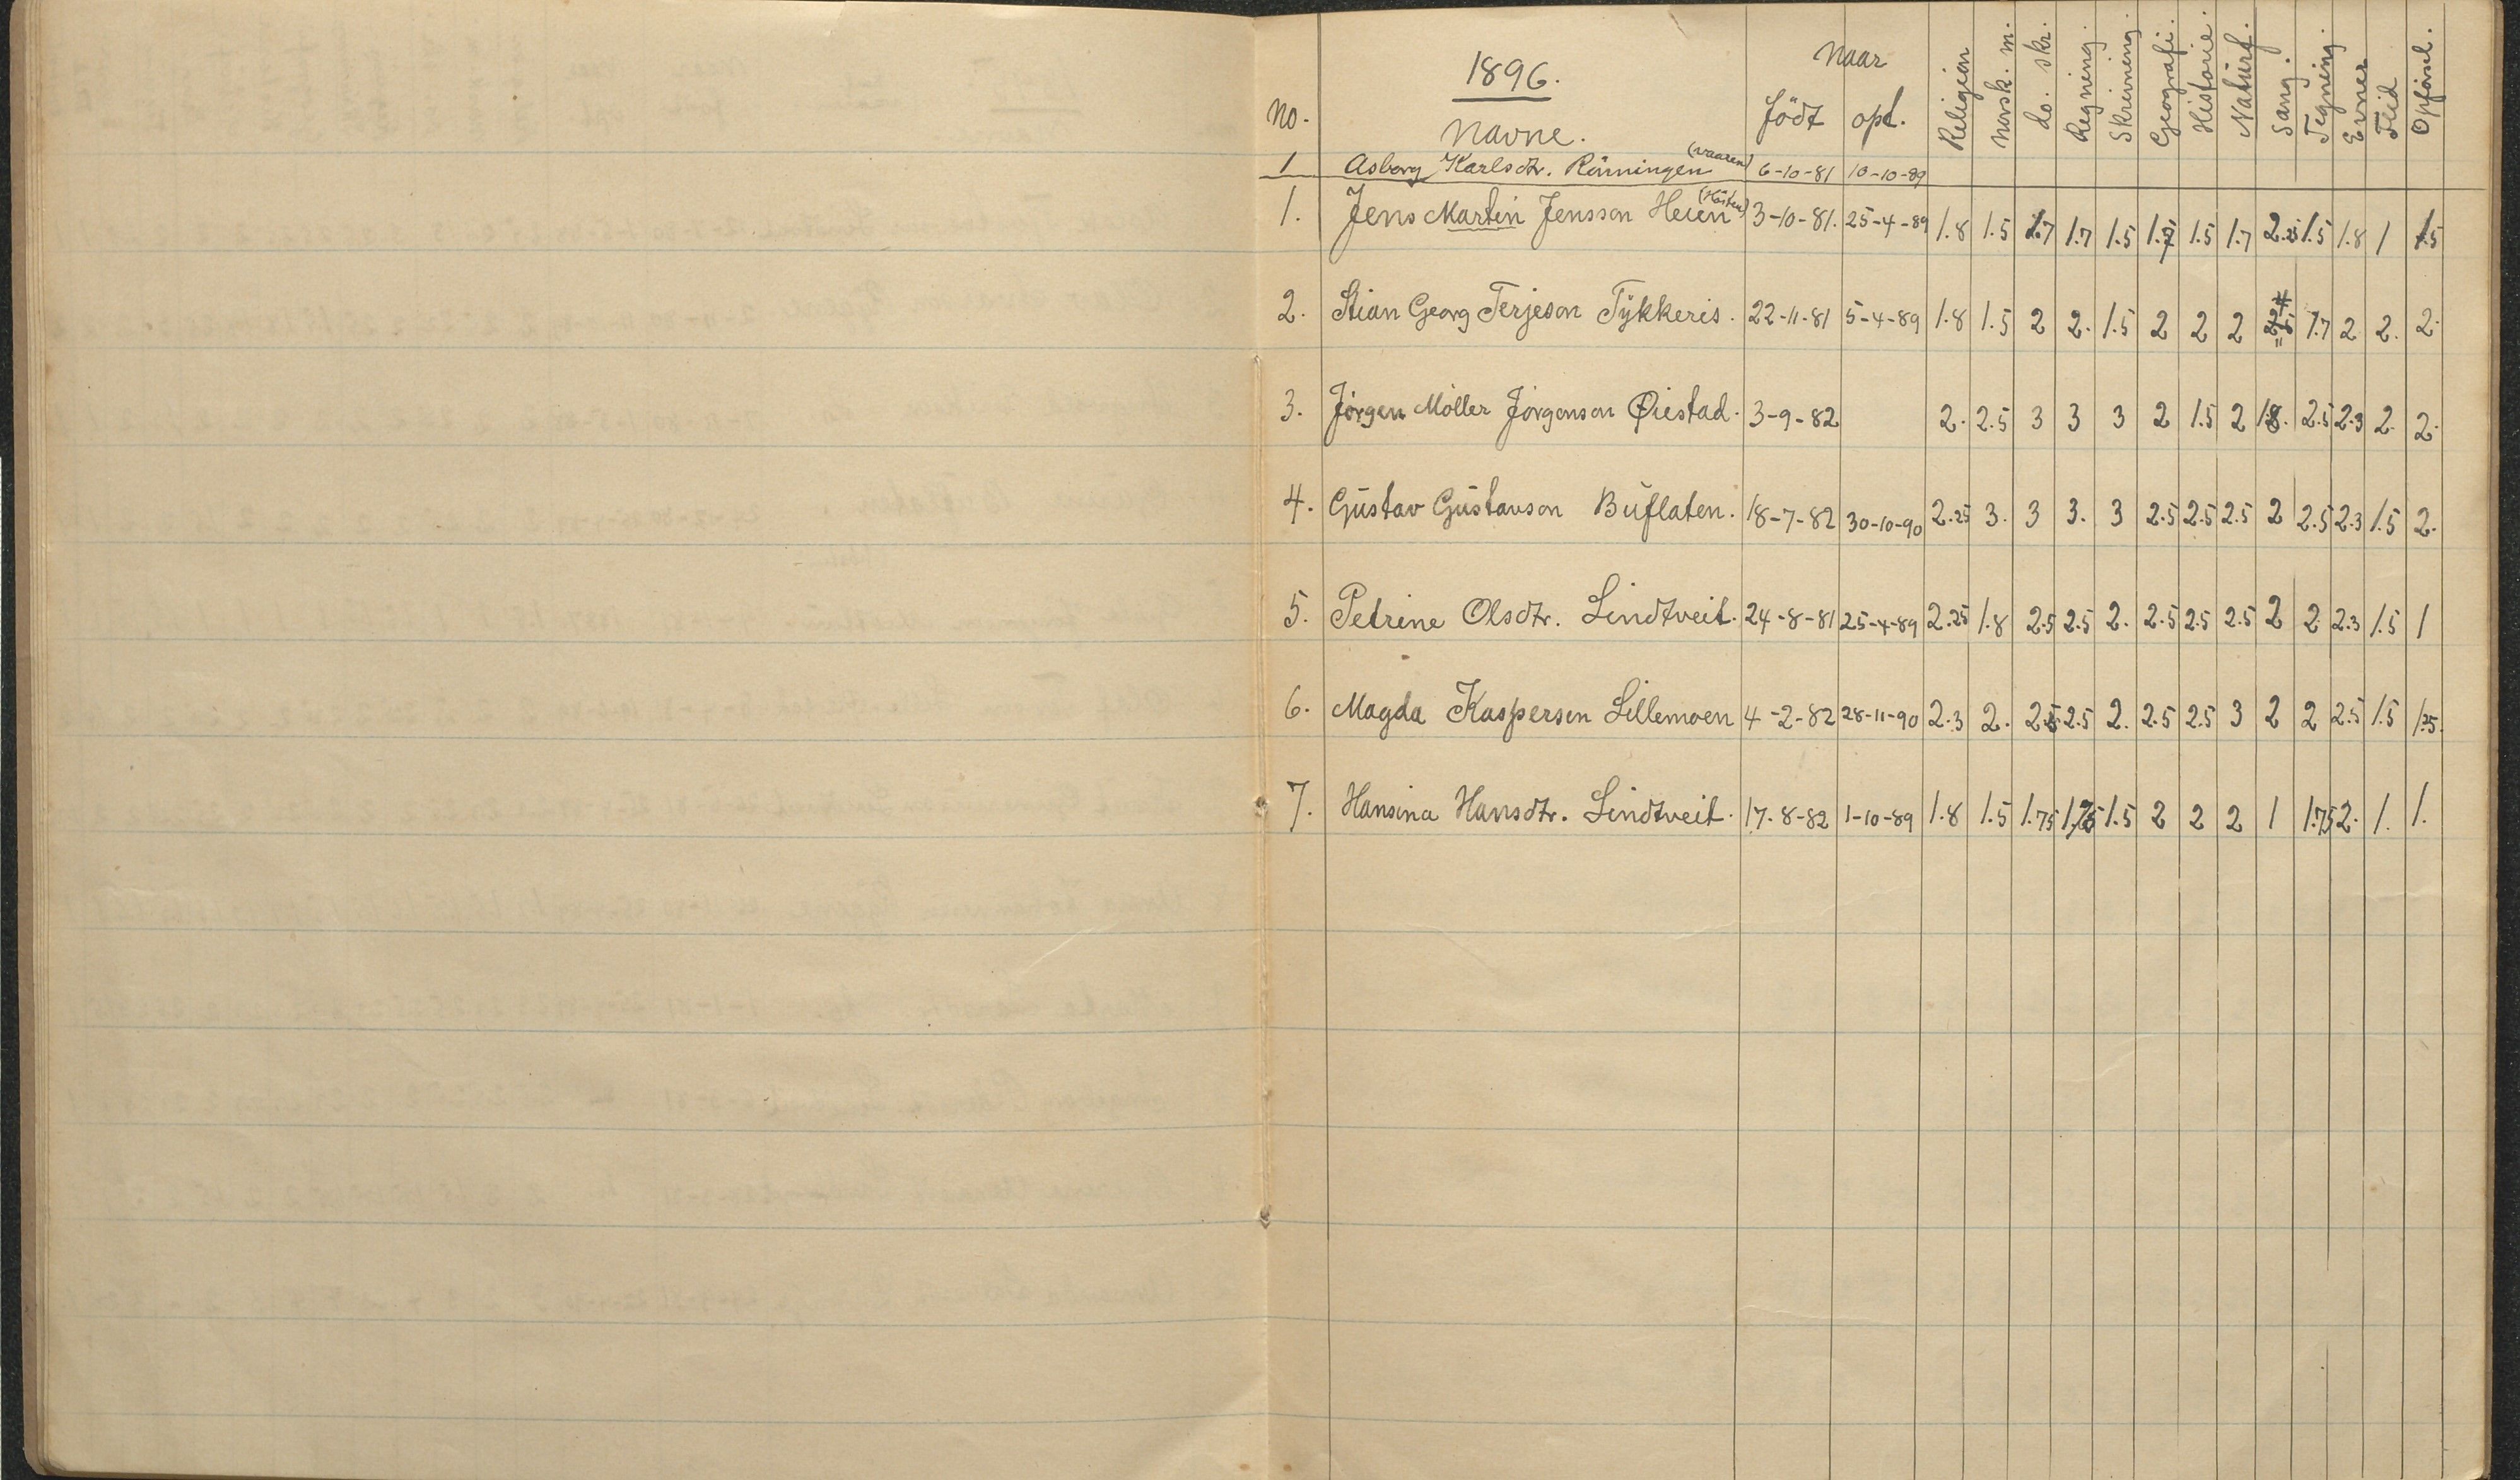 1896.
No. Navne. Naar Födt opt. Religion Norsk. m. do. skr. Regning. Skrivning. Geografi. Historie. Naturf. Sang. Tegning. Evner Flid Opførsel.
1 Asborg Karlsdtr. Rönningen (Vaaren) 6-10-81 10-10-89
1. Jens Martin Jensson Heien (Hösten) 3-10-81. 25-4-89 1.8 1.5 1.7 1.7 1.5 1.7 1.5 1.7 2.25 1.5 1.8 1 1.5
2. Stian Georg Terjeson Tykkeris. 22-11-81 5-4-89 1.8 1.5 2 2. 1.5 2 2 2 1.7 2 2. 2.
3. Jörgen Möller Jörgenson Øiestad. 3-9-82 2. 2.5 3 3 3 2 1.5 2 1.8. 2.5 2.3 2. 2.
4. Gustav Gustavson Buflaten. 18-7-82 30-10-90 2.25 3. 3 3. 3 2.5 2.5 2.5 2 2.5 2.3 1.5 2.
5. Petrine Olsdtr. Lindtveit. 24-8-81 25-4-89 2.25 1.8 2.5 2.5 2. 2.5 2.5 2.5 2 2 2.3 1.5 1
6. Magda Kaspersen Lillemoen 4-2-82 28-11-90 2.3 2. 2.5 2.5 2. 2.5 2.5 3 2 2 2.5 1.5 1.25.
7. Hansina Hansdtr. Lindtveit. 17-8-82 1-10-89 1.8 1.5 1.75 1.75 1.5 2 2 2 1 1.75 2. 1. 1.